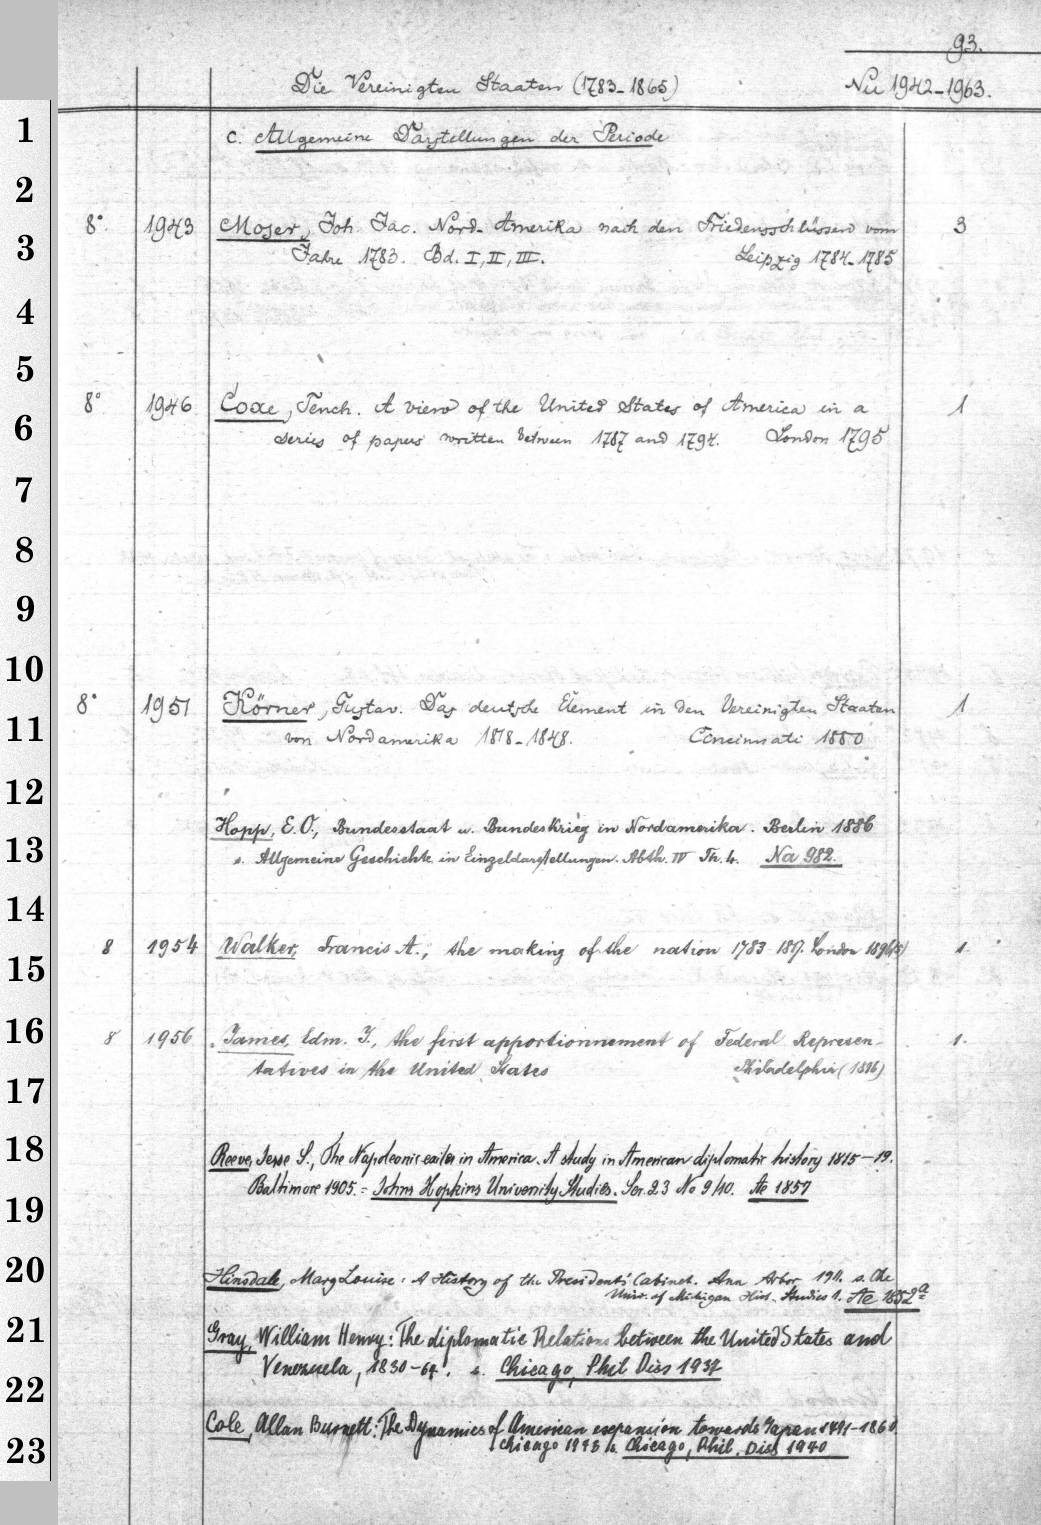 93.
Die Vereinigten Staaten (1783-1865) Nu 1942-1963.
1 c. Allgemeine Darstellungen der Periode
2
8° 1943 Moser, Joh. Jac. Nord-Amerika nach den Friedensschlüssen vom 3
3 Jahre 1783. Bd. I, II, III. Leipzig 1784-1785
4
5
8° 1946 Coxe, Tench. A view of the United States of America in a 1
6 series of papers written between 1787 and 1794. London 1795
7
8
9
10
8° 1951 Körner, Gustav. Das deutsche Element in den Vereinigten Staaten 1
11 von Nordamerika 1818-1848. Cincinnati 1880
12
Hopp, E. O., Bundesstaat u. Bundeskrieg in Nordamerika. Berlin 1886
13 s. Allgemeine Geschichte in Einzeldarstellungen. Abth. IV Th. 4. Na 982.
14
8 1954 Walker, Francis A., the making of the nation 1783-1817. London 1896 1.
15
16 8 1956 James, Edm. J., the first apportionnement of Federal Represen- 1.
17 tatives in the United States Philadelphia (1896)
18 Reeve, Jesse S., The Napoleonic exiles in America. A study in American diplomatic history 1815-19.
19 Baltimore 1905. = Johns Hopkins University Studies. Ser. 23 No 9/10. Ae 1857
20 Hinsdale, Mary Louise: A History of the President's Cabinet. Ann Arbor 1911. s.
Univ. of Michigan Hist. Studies 1. Ae 1852a
21 Gray, William Henry: The diplomatic Relations between the United States and
22 Venezuela, 1830-64. s. Chicago, Phil Diss 1937
Cole, Allan Burnett: The Dynamics of American expansion towards Japan 1791-1860.
23 Chicago 1943 s. Chicago, Phil. Diss 1940